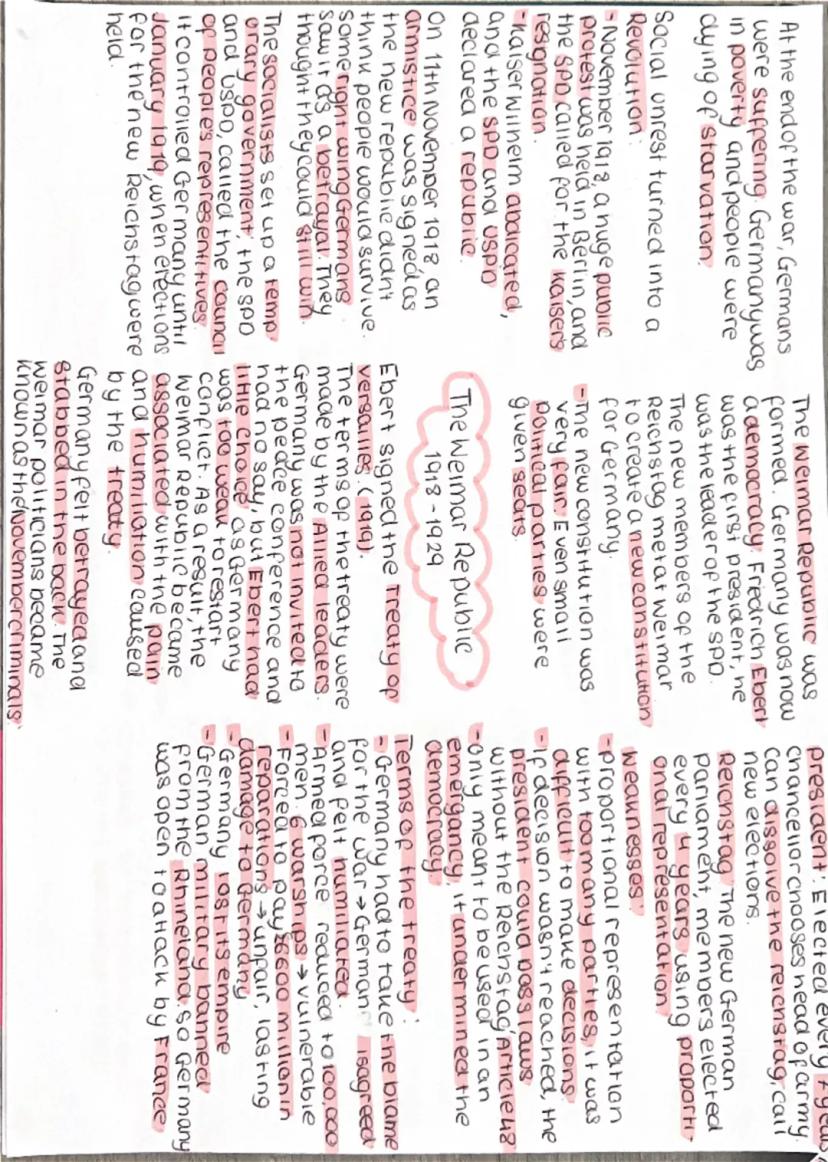 At the end of the war, Germans
were suffering. Germany was
in poverty and people were
dying of starvation.
Social unrest turned into a
Revolution:
- November 1918, a huge public
protest was held in Berlin, and
the SPD called for the Kaisers
resignation.
- Kaiser Wilhelm abdicated,
and the SPD and USPD
declared a republic.
On 11th November 1918 an
armistice was signed as
the new republic didn't
think people would survive.
Some right wing Germans
saw it as a betrayal. They
thought they could still win.
The socialists set up a temp
orary government, the SPD
and USPD, called the council
of peoples representitives.
It controlled Germany until
January 1919, when elections
for the new Reichstag were
held.
The Weimar Republic was
formed. Germany was now
a democracy. Friedrich Ebert
was the first president, he
was the leader of the SPD.
The new members of the
Reichstag met at Weimar
to create a new constitution
for Germany.
- The new constitution was
very fair. Even small
political parties were
given seats.
The Weimar Republic
1918-1929
Ebert signed the Treaty of
Versailles. (1919).
The terms of the treaty were
made by the Allied leaders.
Germany was not invited to
the peace conference and
had no say, but Ebert had
little choice as Germany
was too weak to restart
conflict. As a result, the
Weimar Republic became
associated with the pain
and humiliation caused
by the treaty.
Germany felt betrayed and
stabbed in the back. The
Weimar politicians became
known as the November criminals.
President: Elected every 7 years,
chancellor chooses head of army.
can dissolve the reichstag, call
new elections.
Reichstag The new German
Parliament, members elected
every 4 years using proporti-
onal representation
Weaknesses:
- proportional representation
with too many parties, it was
difficult to make decisions.
- if decision wasn't reached, the
president could pass laws
without the Reichstag, Article 48
- only meant to be used in an
emergancy, it undermined the
democracy
Terms of the treaty:
- Germany had to take the blame
for the war → German isagreed
and felt humiliated.
- Armed force reduced to 100,000
men. 6 warships → vulnerable
- Forced to pay £6600 million in
reparations → unfair, lasting
damage to Germany
- Germany lost its empire
- German military banned
from the Rhineland. so Germany
was open to attack by France